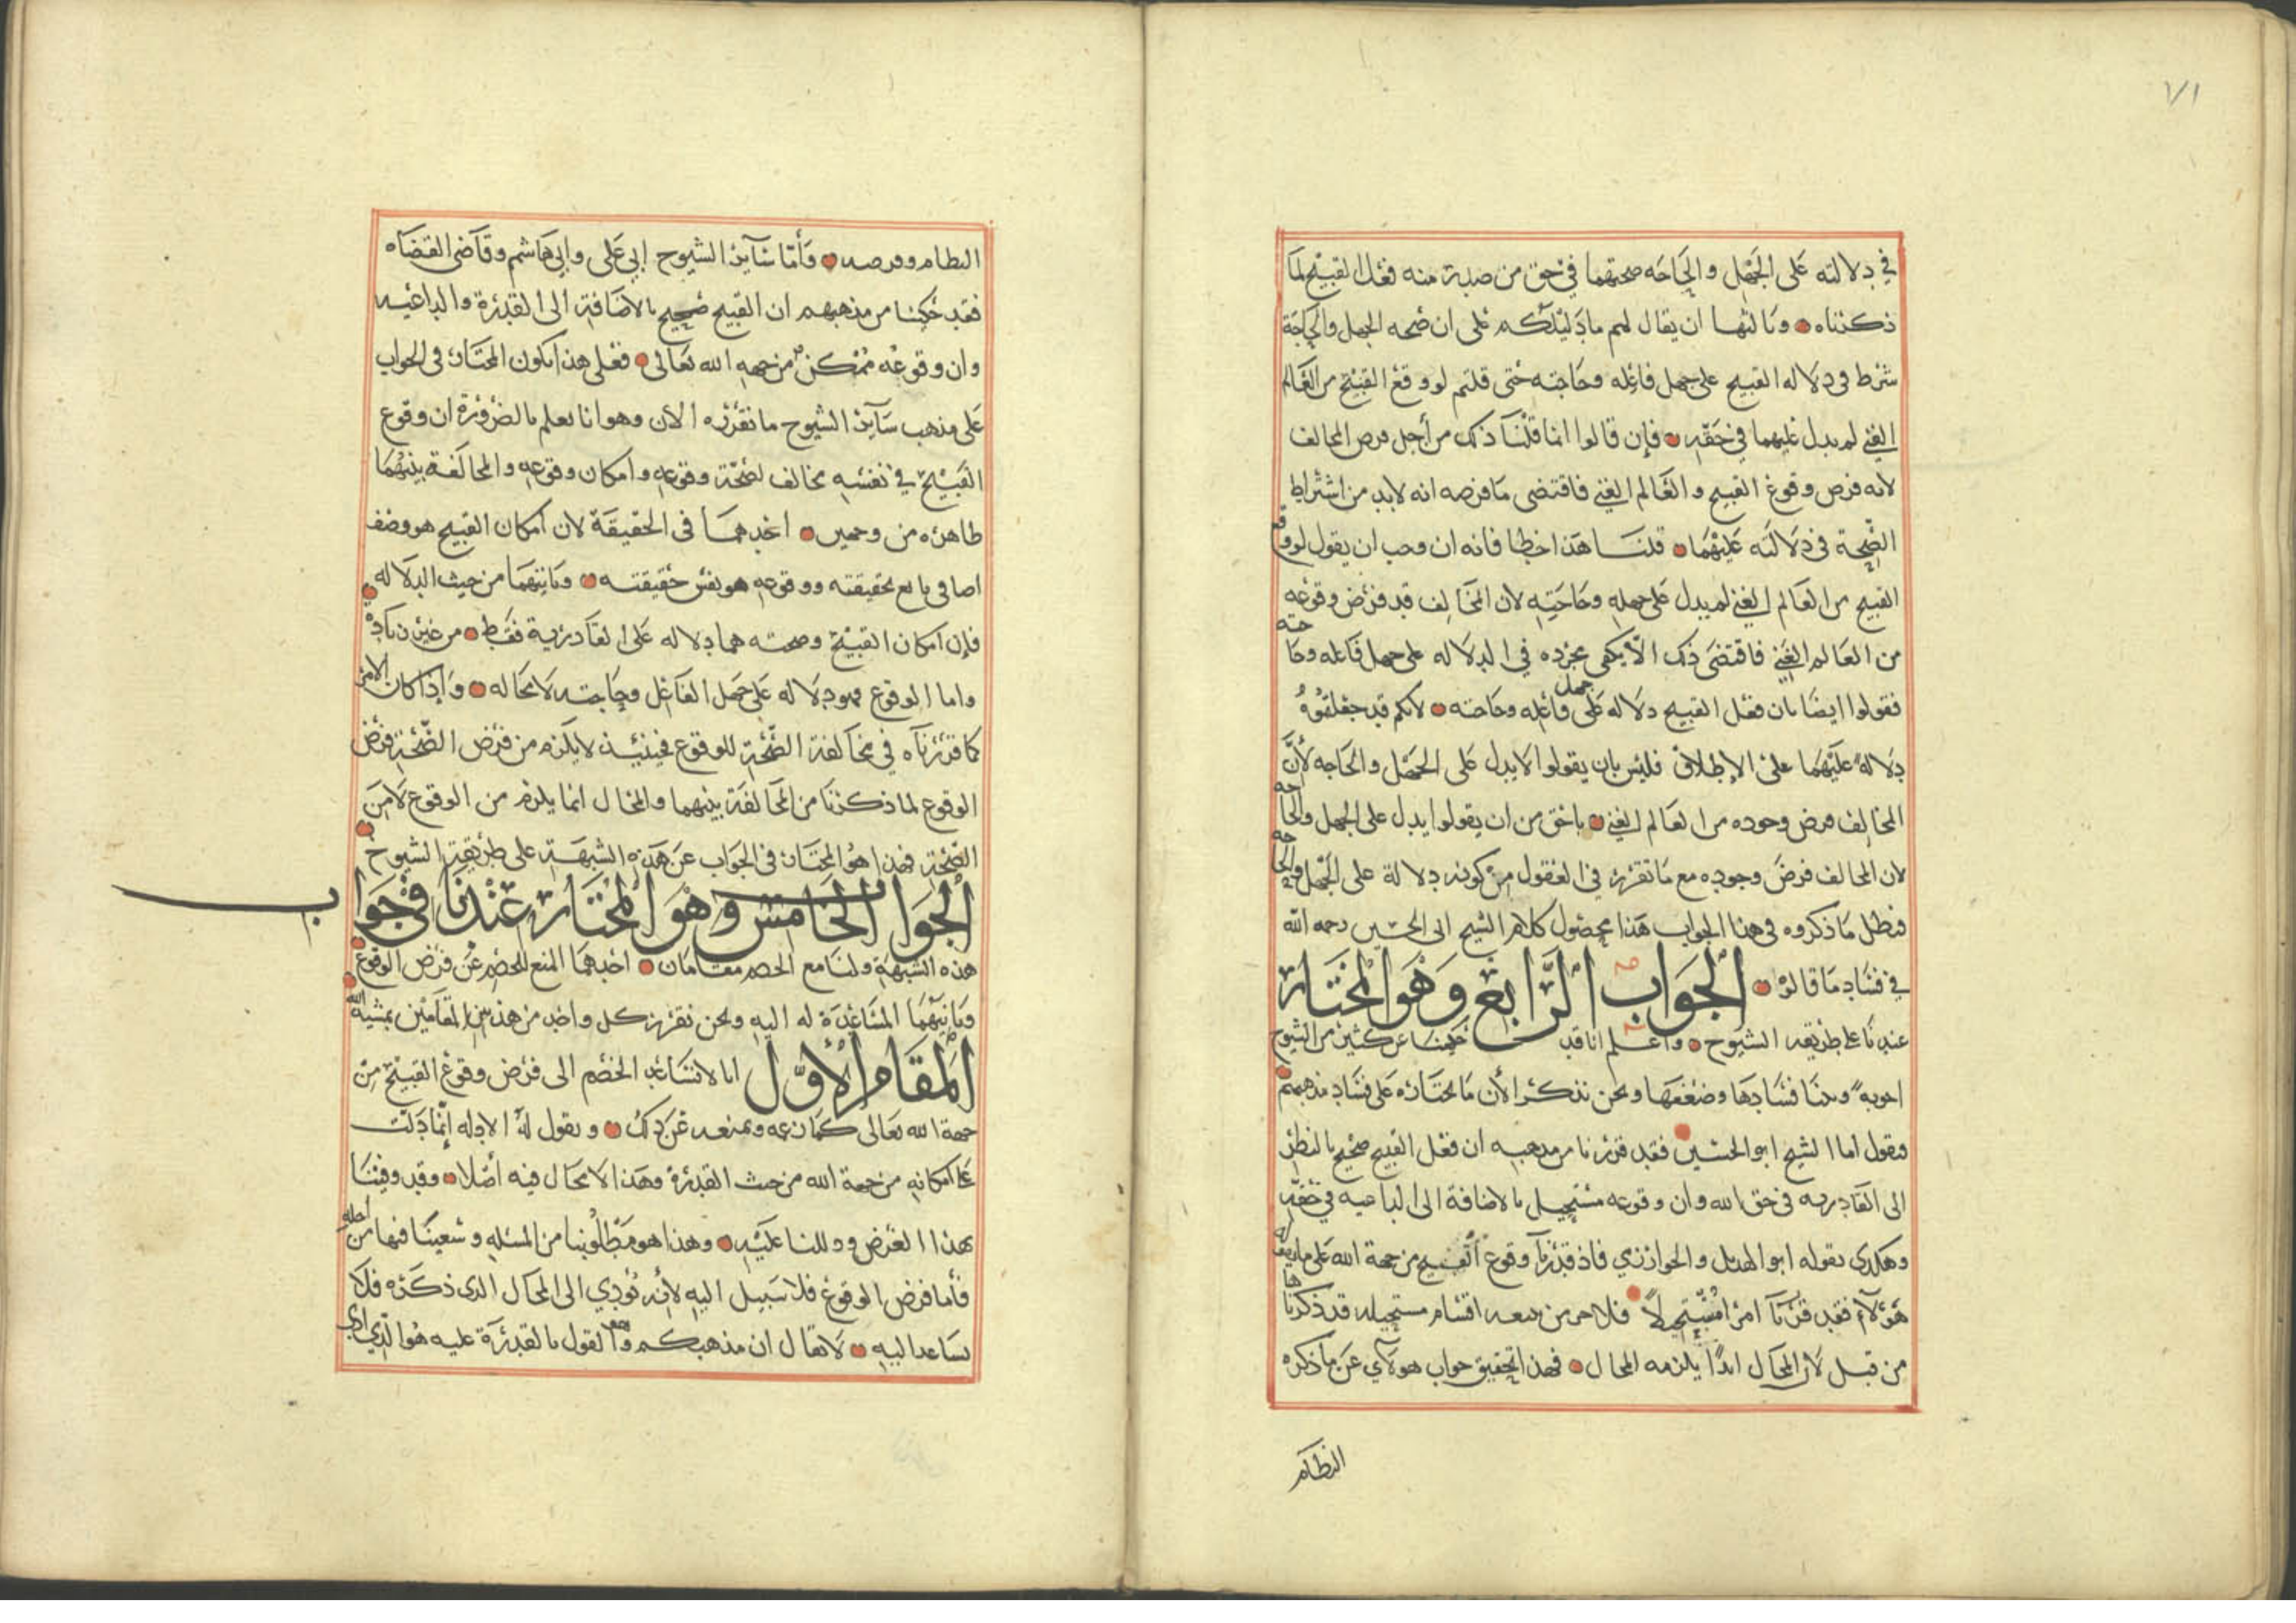 ٧١
في دلالته على الجهل والحاجه صحتهما في حق من صدر منه فعل القبيح لما
ذكرناه وثالثها ان يقال لهم ما دليلكم على ان صحه الجهل والحاجة
شرط في دلاله القبيح على جهل فاعله وحاجته حتى قلتم لو وقع القبيح من العالم
الغني لم يدل عليهما في حقه فإن قالوا انما قلنا ذلك من أجل فرض المخالف
لانه فرض وقوع القبيح والعالم الغني فاقتضى ما فرضه انه لابد من اشتراط
الصحة في دلالته عليهما قلنا هذا خطا فانه ان وجب ان يقول لو وقع
القبيح من العالم الغني لم يدل على جهله وحاجته لان المخالف قد فرض وقوعه
من العالم الغني فاقتضى ذلك الا يكفي مجرده في الدلاله على جهل فاعله وحاجته
فقولوا ايضا بان فعل القبيح دلاله على جهل فاعله وحاجته لانكم قد جعلتموه
دلالة عليهما على الإطلاق فليس بان يقولوا لا يدل على الجهل والحاجه لأن
المخالف فرض وجوده من العالم الغني باحق من ان يقولوا يدل على الجهل والحاجه
لان المخالف فرض وجوده مع ما تقرر في العقول من كونه دلالة على الجهل والحاجه
فبطل ما ذكروه في هذا الجواب هذا محصول كلام الشيخ ابي الحسين رحمه الله
في فساد ما قالوا الجواب الرابع وهو المختار
عندنا على طريقه الشيوخ واعلم انا قد حكينا عن كثير من الشيوخ
اجوبة وبينا فسادها وضعفها ونحن نذكر الأن ما نختاره على فساد مذهبهم
فنقول اما الشيخ ابو الحسين فقد قررنا من مذهبه ان فعل القبيح صحيح بالنظر
الى القادريه في حق الله وان وقوعه مستحيل بالاضافة الى الداعيه في حقه
وهكذى يقوله ابو الهذيل والخوارزمي فاذ قدرنا وقوع القبيح من جهة الله على ما يقوله
هؤلاء فقد قدرنا امرا مستحيلا فلا جرم من بعد اقسام مستحيله قد ذكرناها
من قبل لان المحال ابدا يلزمه المحال فهذا تحقيق جواب هولاي عن ما ذكره
النظام
النظام وفرضه وأما سآير الشيوخ ابي على وابي هاشم وقاضى القضاه
فقد حكينا من مذهبهم ان القبيح صحيح بالاضافة الى القدرة والداعيه
وان وقوعه ممكن من جهه الله تعالى فعلى هذا يكون المختار في الجواب
على مذهب سآير الشيوخ ما نقرره الان وهو انا نعلم بالضرورة ان وقوع
القبيح في نفسه مخالف لصحة وقوعه وامكان وقوعه والمخالفة بينهما
ظاهره من وجهين احدهما في الحقيقة لان امكان القبيح هو وصف
اضافي تابع لحقيقته ووقوعه هو نفس حقيقته وثانيهما من حيث الدلاله
فإن امكان القبيح وصحته هما دلاله على القادرية فقط من غير زيادة
واما الوقوع فهو دلاله على جهل الفاعل وحاجته لا محاله وإذا كان الامر
كما قررناه في مخالفة الصحة للوقوع فحينئذ لا يلزم من فرض الصحة فرض
الوقوع لما ذكرنا من المخالفة بينهما والمحال انما يلزم من الوقوع لا من
الصحة فهذا هو المختار في الجواب عن هذه الشبهة على طريقة الشيوخ
الجواب الخامس وهو المختار عندنا في جواب
هذه الشبهة ولنا مع الخصم مقامان احدهما المنع للخصم عن فرض الوقوع
وثانيهما المساعدة له اليه ونحن نقرر كل واحد من هذين المقامين بمشيه الله
المقام الأول انا لا نساعد الخصم الى فرض وقوع القبيح من
جهة الله تعالى كما زعمه ونمنعه عن ذلك ونقول له الادله إنما دلت
على امكانه من جهة الله من حيث القدرة وهذا لا محال فيه أصلا وقد وفينا
بهذا الغرض ودللنا عليه وهذا هو مطلوبنا من المسئله وسعينا فيها من أجله
فأما فرض الوقوع فلا سبيل اليه لأنه يؤدي الى المحال الذى ذكره فلا
نساعد اليه لا يقال ان مذهبكم هو القول بالقدرة عليه هو الذي ادى